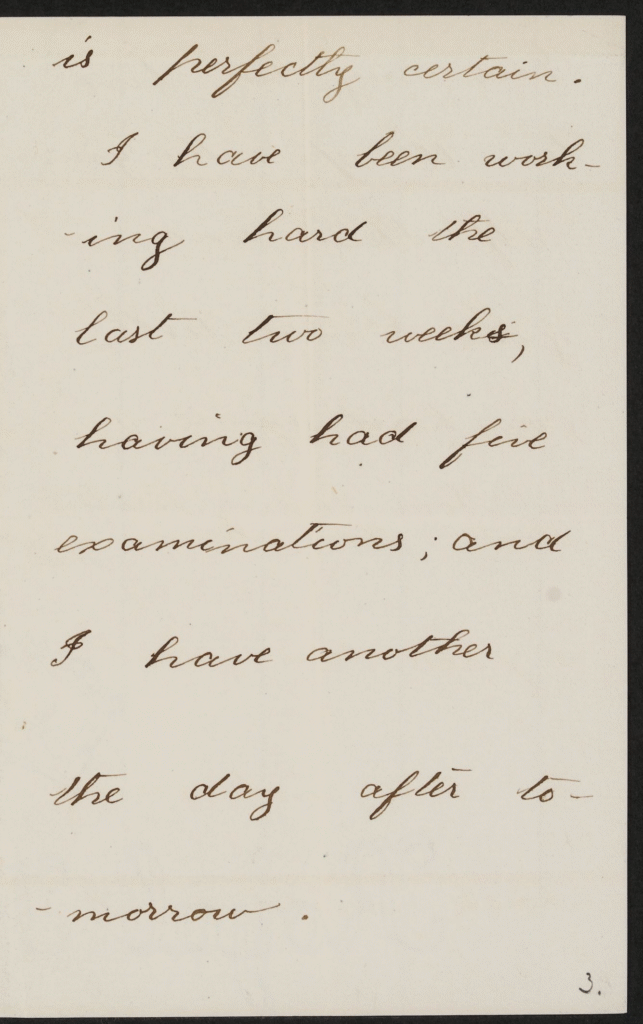 is perfectly certain.
I have been work-
-ing hard the
last two weeks,
having had five
examinations; and
I have another
the day after to-
-morrow.
3.